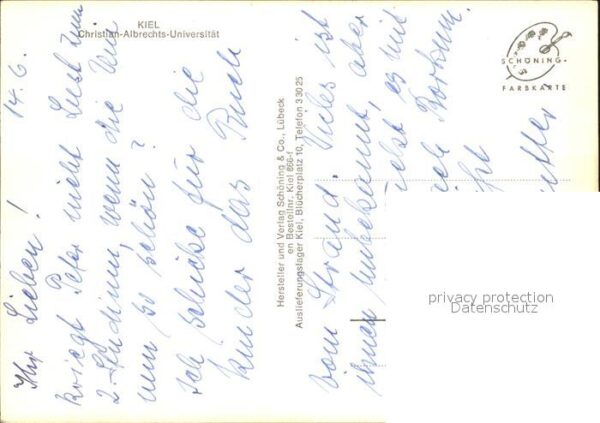 KIEL
Christian-Albrechts-Universität
14. 6.
Ihr Lieben!
Kriegt Peter nicht Lust zum
2. Studium, wenn die Uni
nun so schön?
Ich schicke für die
Kinder das Buch
vom Strand. Vieles ist
ihnen unbekannt, aber
es mit
Borkum.
Mutter
Hersteller und Verlag Schöning & Co., Lübeck
en Bestellnr. Kiel 666-f
Auslieferungslager Kiel, Blücherplatz 10, Telefon 33025
SCHÖNING
FARBKARTE
privacy protection
Datenschutz